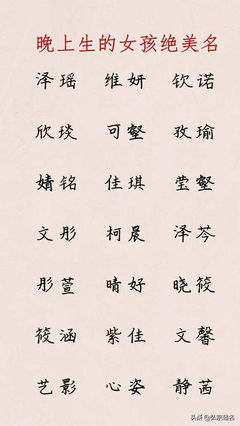 晚上生的女孩绝美名
泽瑶 维妍 钦诺
欣琰 可壑 孜瑜
婧铭 佳琪 莹壑
文彤 柯晨 泽芩
彤萱 晴好 晓筱
筱涵 紫佳 文馨
艺影 心姿 静茜
头条 @弘职起名